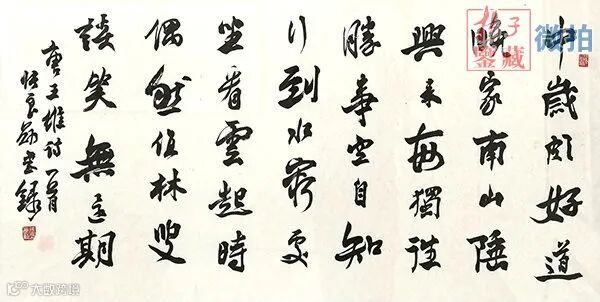 中歲頗好道
晚家南山陲
興來每獨往
勝事空自知
行到水窮處
坐看雲起時
偶然值林叟
談笑無還期
唐王維詩一首
錄
孔子
鑒藏
微拍
大欧跨境